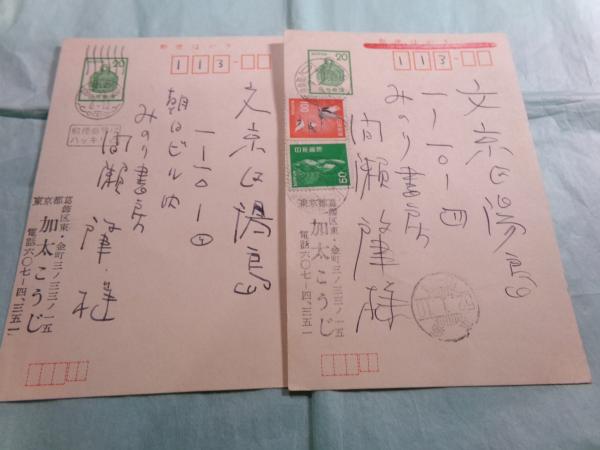 郵便はがき
20
113-
文京区湯島
一ー一〇ー四
朝日ビル内
みのり書房
間瀬 様
東京都葛飾区東・金町三ノ三三ノ一五
加太こうじ
電話六〇七ー四、三五一
郵便はがき
20
113-
文京区湯島
一ー一〇ー四
みのり書房
間瀬 様
日本郵便
60
東京都葛飾区東・金町三ノ三三ノ一五
加太こうじ
電話六〇七ー四、三五一